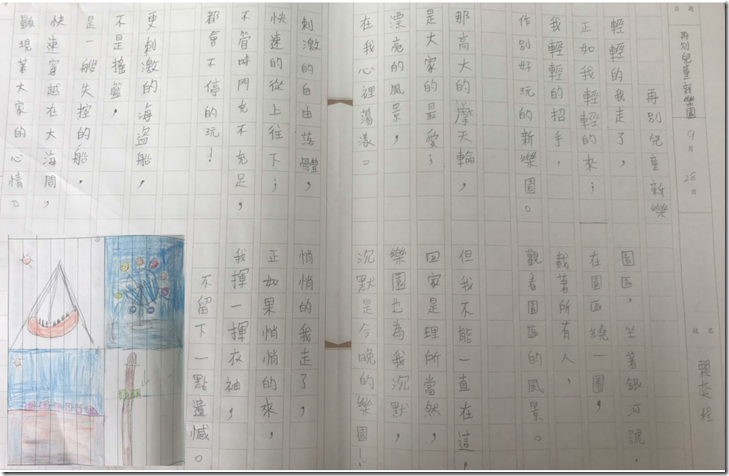 再別兒童新樂園 9月 28日
姓名
再別兒童新樂
輕輕的我走了，
正如我輕輕的來；
我輕輕的招手，
作別好玩的新樂園。
那高大的摩天輪，
是大家的最愛；
漂亮的風景，
在我心裡蕩漾。
刺激的自由落體，
快速的從上往下；
不管時間充不充足，
都會不停的玩！
更刺激的海盜船，
不是搖籃，
是一艘失控的船，
快速穿越在大海間，
顯現著大家的心情。
園區，坐著銀河號，
在園區繞一圈，
載著所有人，
觀看園區的風景。
但我不能一直在這，
回家是理所當然，
樂園也為我沉默，
沉默是今晚的樂園！
悄悄的我走了，
正如果悄悄的來，
我揮一揮衣袖，
不留下一點遺憾。